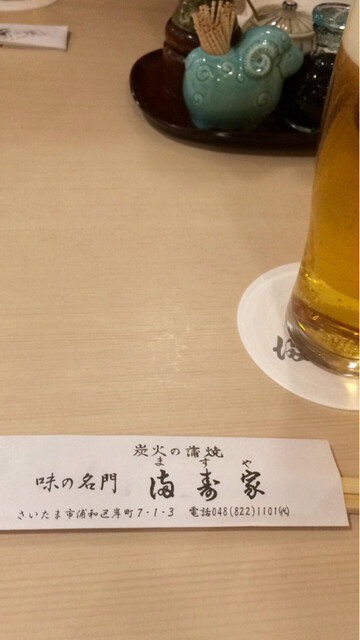 炭火の蒲焼
ますや
味の名門 満寿家
さいたま市浦和区岸町7-1-3 電話048(822)1101㈹